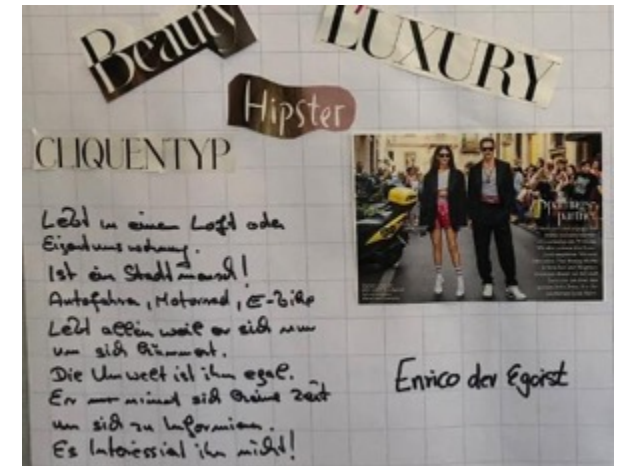 Beauty
LUXURY
Hipster
CLIQUENTYP
Lebt in einem Loft oder
Eigentumswohnung.
Ist ein Stadtmensch!
Autofahrn, Motorrad, E-Bike
Lebt allein weil er sich nur
um sich kümmert.
Die Umwelt ist ihm egal.
Er nimmt sich keine Zeit
um sich zu Informieren.
Es Interessiert ihn nicht!
Enrico der Egoist